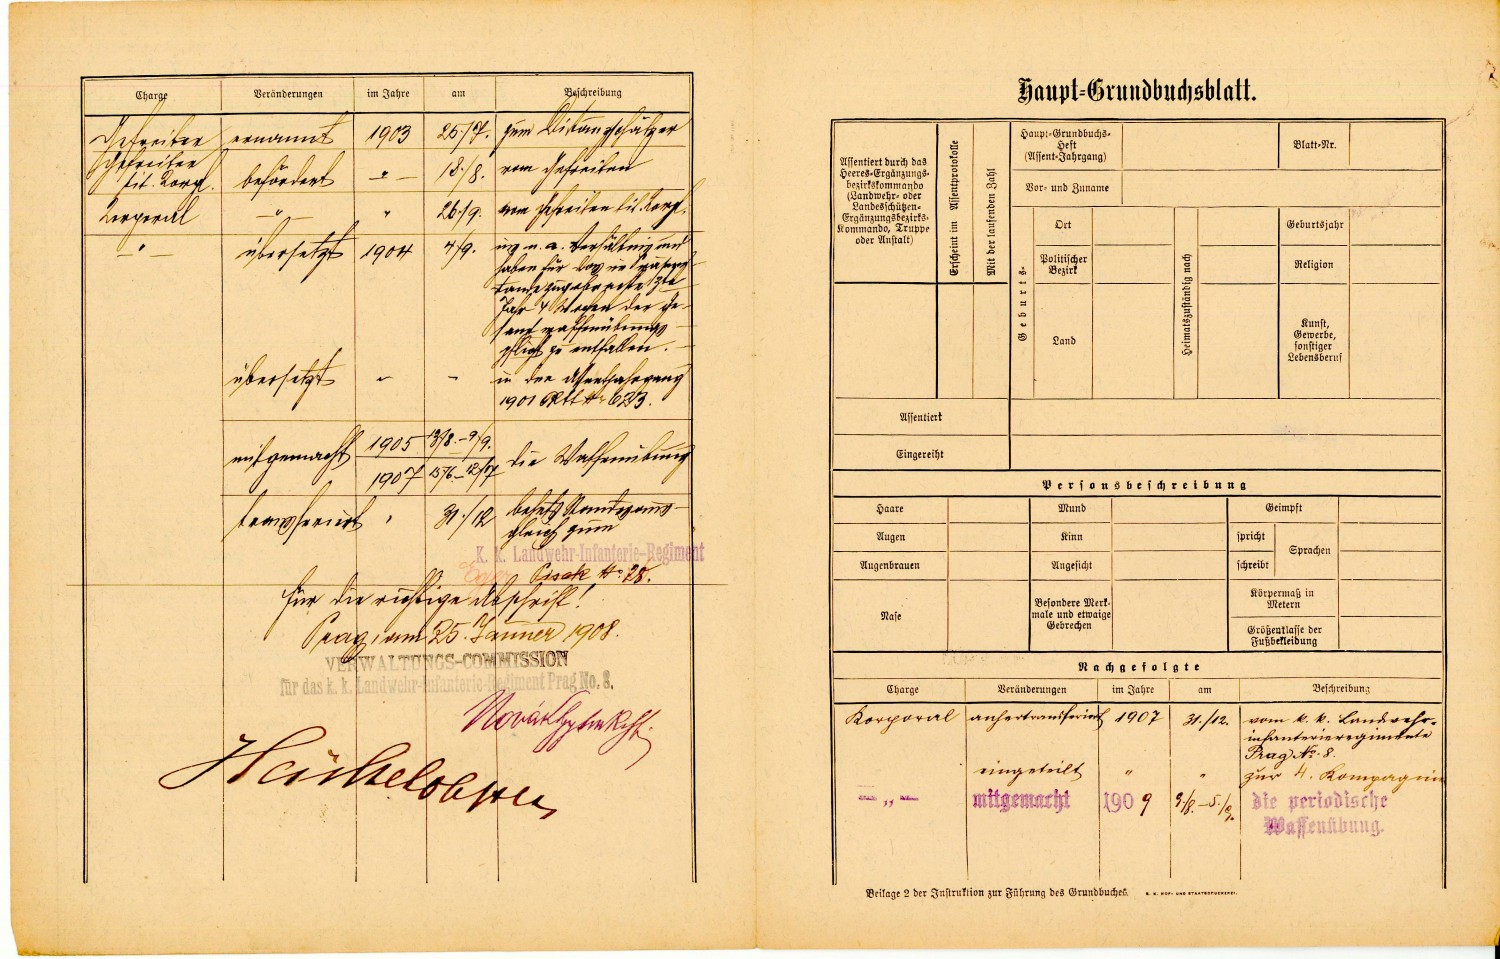 Charge Veränderungen im Jahre am Beschreibung
Gefreiter ernannt 1903 25./7. zum Distanzschätzer
Gefreiter
tit. Korp. befördert " 18./8. vom Gefreiten
Korporal " " 26./9. vom Gefreiten tit. Korp.
" übersetzt 1904 4/9. in n. a. Verhältnis und
haben für das im
Jahr 4 Wochen der Ge-
samtwaffenübungs-
pflicht zu entfallen.
übersetzt " " in den Assentjahrgang
1901 Bltt Nr 623.
mitgemacht 1905 13/8. – 9/9. die Waffenübung
1907 15/6. – 12/7
transferiert " 31./12 behufs Standesaus-
gleich zum
K. k. Landwehr-Infanterie-Regiment
Eger Pisek No. 28.
Für die richtige Abschrift!
Prag, am 25. Jänner 1908.
VERWALTUNGS-COMMISSION
für das k. k. Landwehr-Infanterie-Regiment Prag No. 8.
Novák
Haupt-Grundbuchsblatt.
Assentiert durch das
Heeres-Ergänzungs-
bezirkskommando
(Landwehr- oder
Landesschützen-
Ergänzungsbezirks-
Kommando, Truppe
oder Anstalt)
Erscheint im Assentprotokolle
Mit der laufenden Zahl
Haupt-Grundbuchs-
Heft
(Assent-Jahrgang)
Blatt-Nr.
Vor- und Zuname
Geburts-
Ort
Politischer
Bezirk
Land
Heimatszuständig nach
Geburtsjahr
Religion
Kunst,
Gewerbe,
sonstiger
Lebensberuf
Assentiert
Eingereiht
Personsbeschreibung
Haare Mund Geimpft
Augen Kinn spricht Sprachen
Augenbrauen Angesicht schreibt
Nase
Besondere Merk-
male und etwaige
Gebrechen
Körpermaß in
Metern
Größenklasse der
Fußbekleidung
Nachgefolgte
Charge Veränderungen im Jahre am Beschreibung
Korporal anhertransferiert 1907 31./12. vom k. k. Landwehr-
infanterieregimente
Prag No. 8.
eingeteilt " " zur 4. Kompagnie
— „ — mitgemacht 1909 9./8. – 5./9. die periodische
Waffenübung.
Beilage 2 der Instruktion zur Führung des Grundbuches. K. K. HOF- UND STAATSDRUCKEREI.